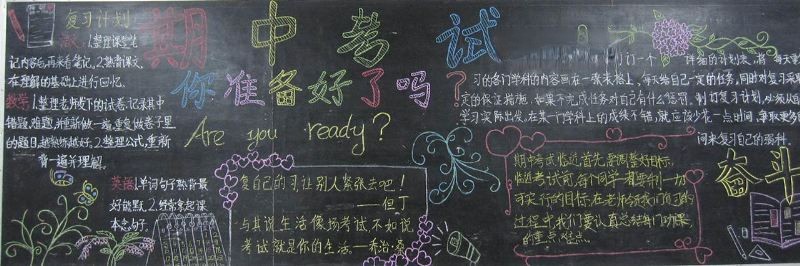 复习计划
期中考试
你准备好了吗？
Are you ready?
语文：1.整理课堂笔
记内容后,再来看笔记,2.熟背课文,
在理解的基础上进行回忆。
数学：1.整理老师发下的试卷,记录其中
错题,难题,并重新做一遍,重复做卷子里
的题目,越熟练越好,2.整理公式,重新
背一遍并理解。
英语：1.单词句子熟背最
好能默,2.经常拿起课
本念句子。
复自己的习,让别人紧张去吧！
——但丁
与其说生活像场考试,不如说
考试就是你的生活。—乔治·桑
订一个 详细的计划表,将 每天
习的各门学科的内容画在一张表格上,每天给自己一定的任务,同时对复习
定的保证措施,如果不完成任务对自己有什么惩罚,制订复习计划,必须从
学习实际出发,在某一个学科上的成绩不错,就应该少花一点时间,争取更多
间来复习自己的弱科。
期中考试临近,首先要调整好目标,
临近考试前,每个同学一定要制订一切
可实行的目标,在老师领我们复习的
过程中,我们要认真总结每门功课
的重点、难点。
奋斗